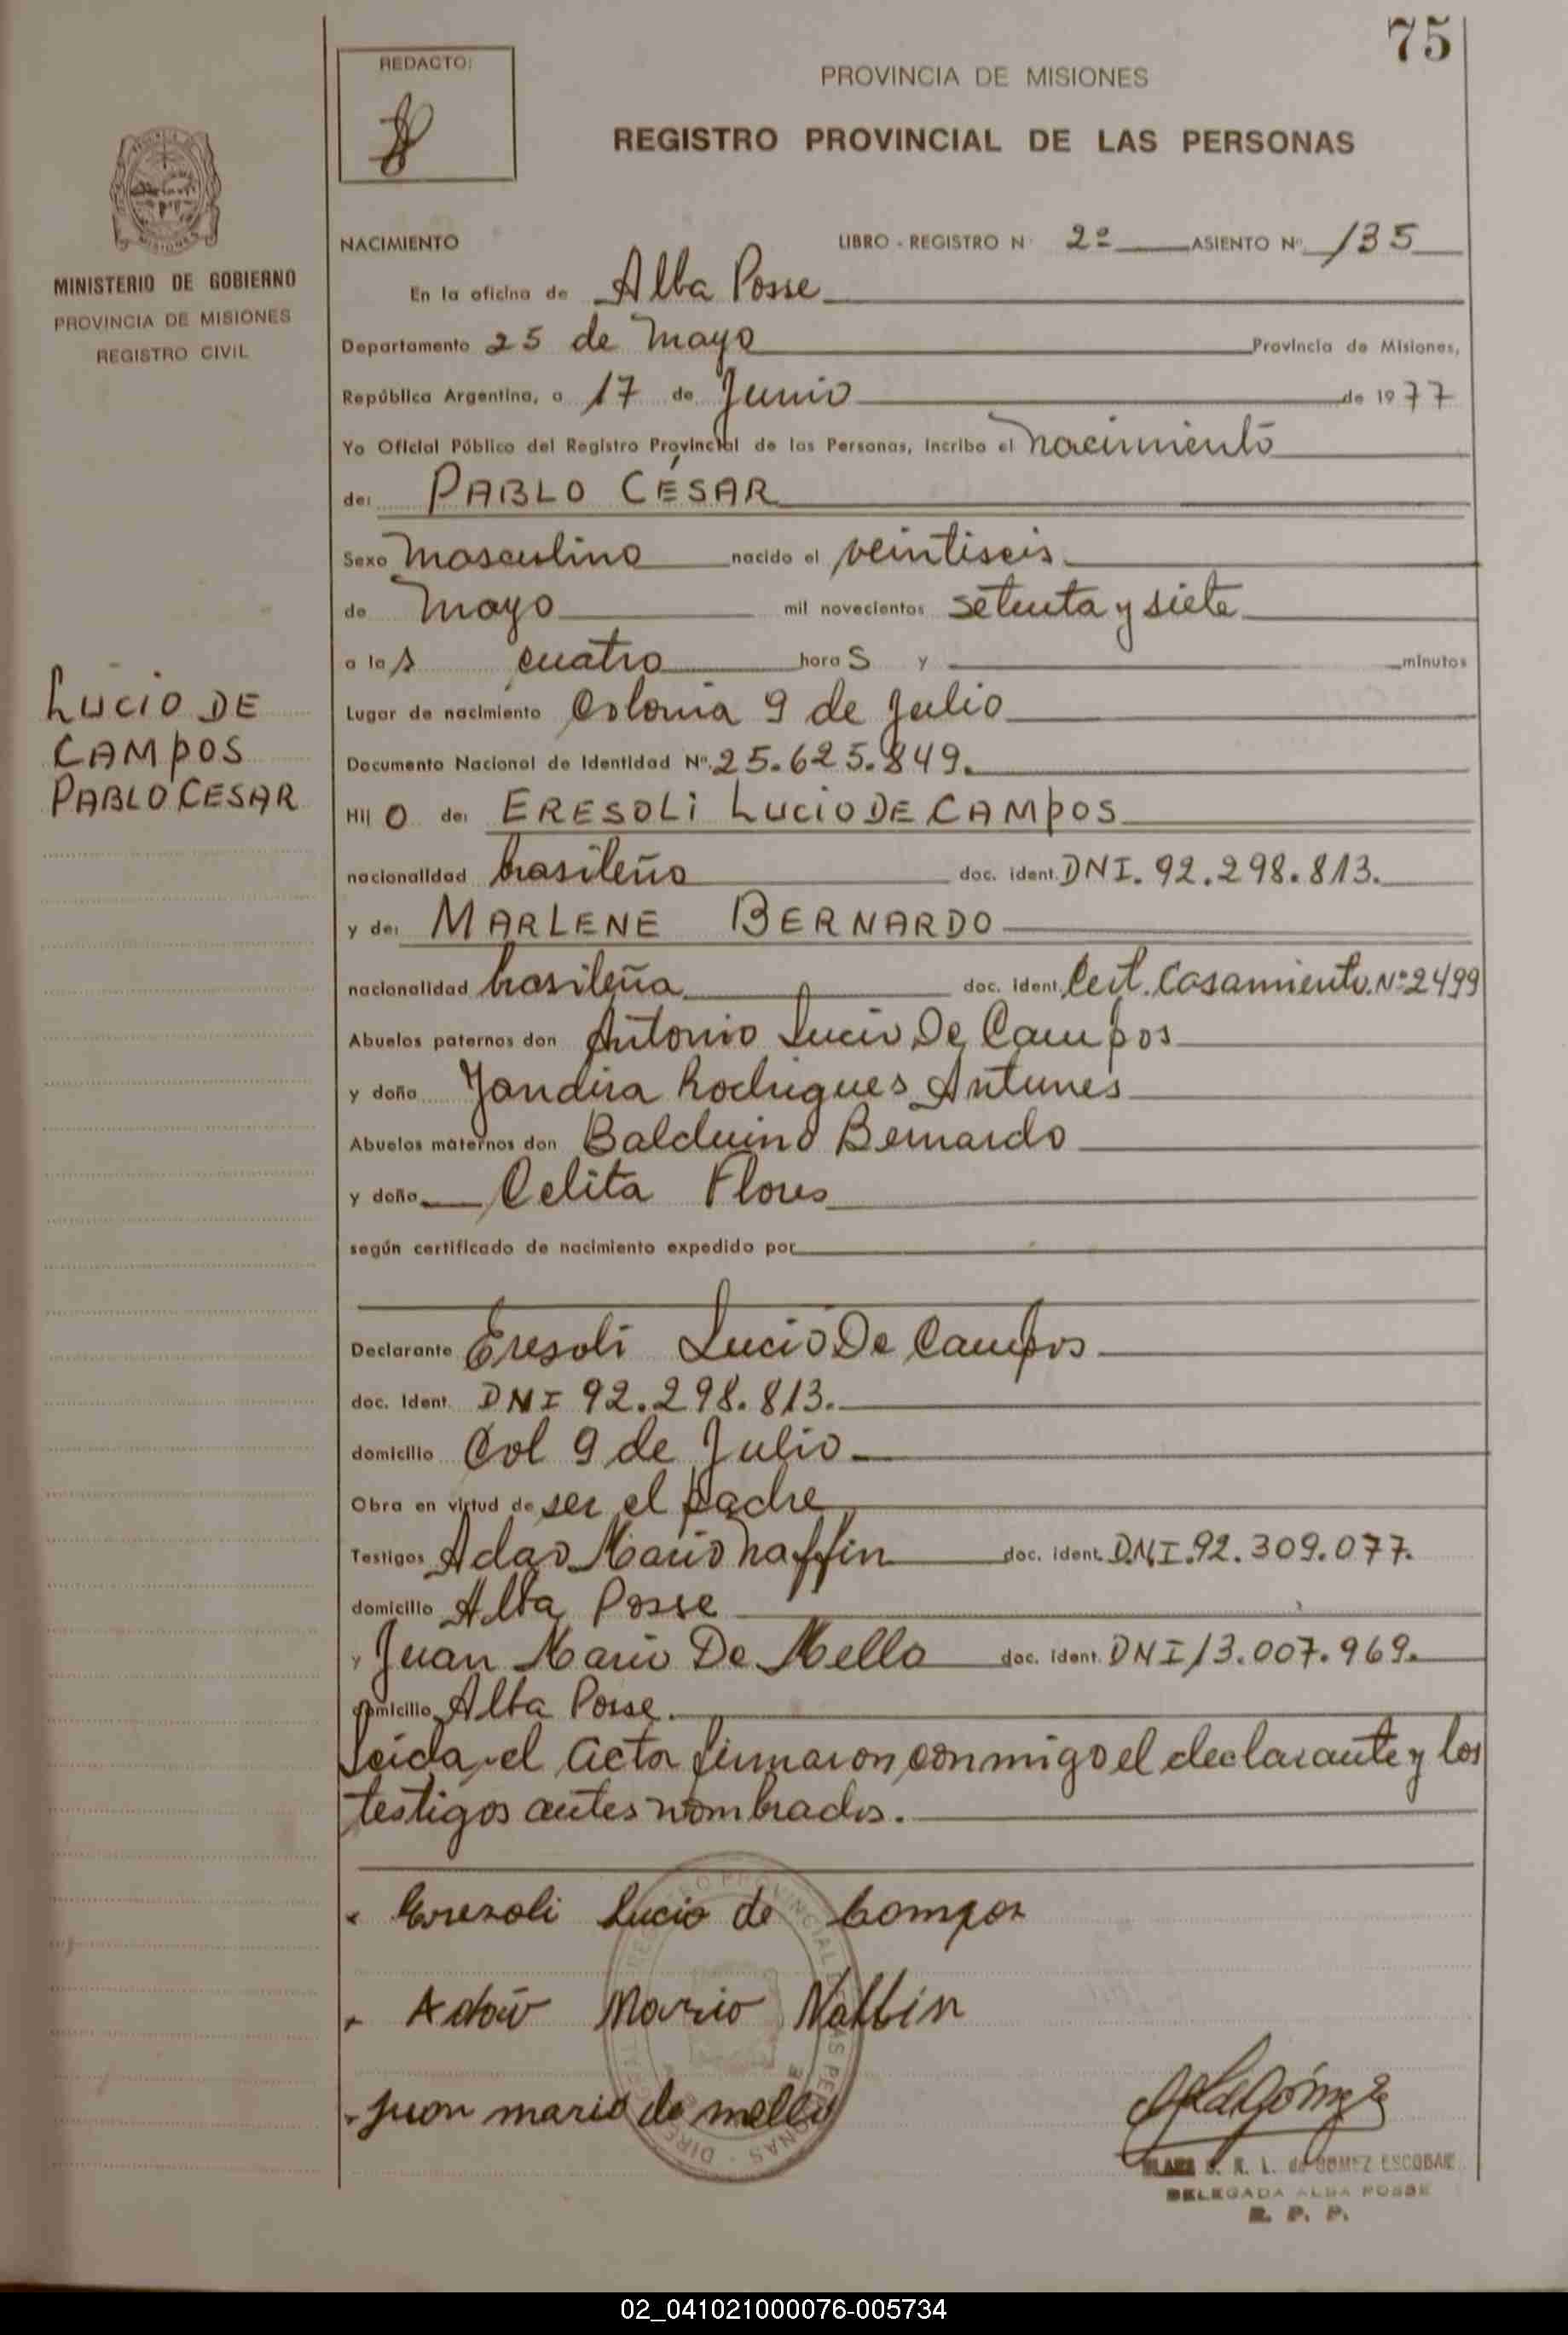 75
REDACTO:
PROVINCIA DE MISIONES
REGISTRO PROVINCIAL DE LAS PERSONAS
MISIONES
MINISTERIO DE GOBIERNO
PROVINCIA DE MISIONES
REGISTRO CIVIL
LUCIO DE
CAMPOS
PABLO CESAR
NACIMIENTO LIBRO - REGISTRO N 2º ASIENTO Nº 135
En la oficina de Alba Posse
Departamento 25 de Mayo Provincia de Misiones,
República Argentina, a 17 de Junio de 1977
Yo Oficial Público del Registro Provincial de las Personas, incribo el nacimiento
de: PABLO CÉSAR
Sexo Masculino nacido el veintiseis
de Mayo mil novecientos setenta y siete
a las cuatro horas y minutos
Lugar de nacimiento Colonia 9 de Julio
Documento Nacional de Identidad Nº 25.625.849.
Hijo de: ERESOLI LUCIO DE CAMPOS
nacionalidad brasileño doc. ident. DNI. 92.298.813.
y de: MARLENE BERNARDO
nacionalidad brasileña doc. ident. Cert. Casamiento. Nº 2499
Abuelos paternos don Antonio Lucio De Campos
y doña Jandira Rodrigues Antunes
Abuelos maternos don Balduino Bernardo
y doña Celita Flores
según certificado de nacimiento expedido por
Declarante Eresoli Lucio De Campos
doc. Ident. DNI 92.298.813.
domicilio Col 9 de Julio
Obra en virtud de ser el padre
Testigos Adao Mario Naffin doc. ident. DNI.92.309.077.
domicilio Alba Posse
y Juan Mario De Mello doc. ident. DNI 13.007.969.
domicilio Alba Posse.
Leida el acta firmaron conmigo el declarante y los
testigos antes nombrados.
Erezoli Lucio de Campos
Adaũ Mario Naffin
Juon mario de mello
R. L. de GOMEZ ESCOBAR
DELEGADA ALBA POSSE
R. P. P.
02_041021000076-005734